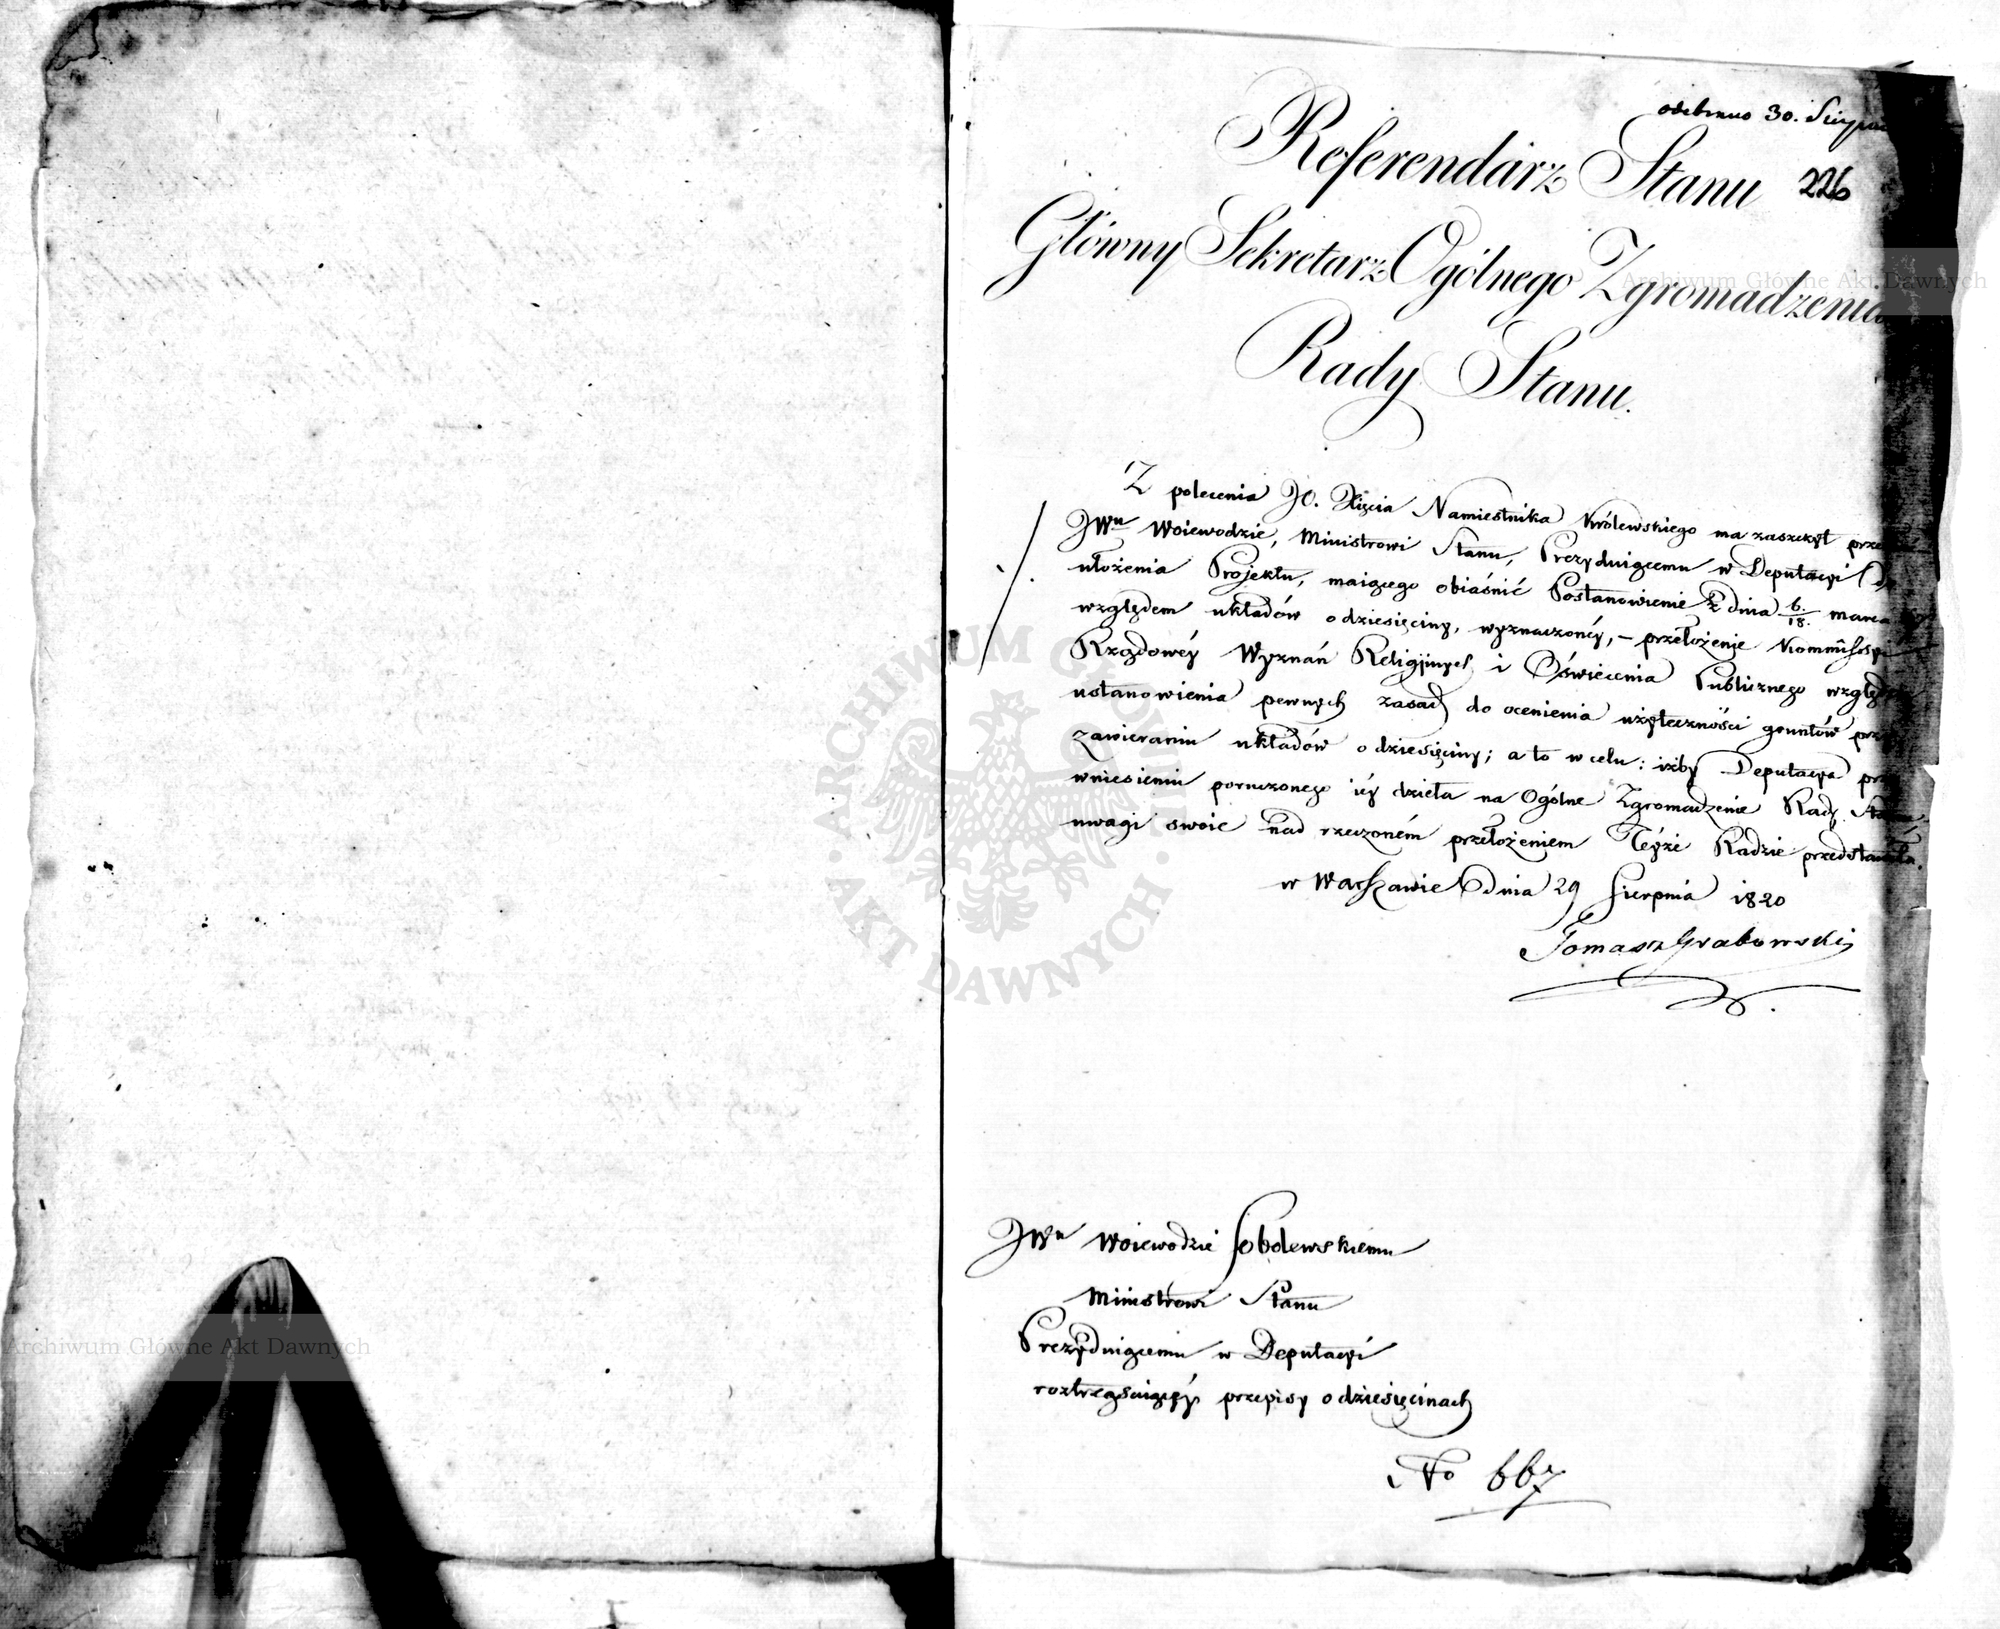 odebrano 30. Sierpnia
226
Referendarz Stanu
Główny Sekretarz Ogólnego Zgromadzenia
Rady Stanu.
Z polecenia JO. Xięcia Namiestnika Królewskiego ma zaszczyt
JWu Woiewodzie, Ministrowi Stanu, Prezyduiącemu w Deputacyi do
ułożenia Projektu, maiącego obiaśnić Postanowienie z dnia 6/18. marca
względem układów o dziesięciny, wyznaczonéy, – przełożenie Kommissyi
Rządowéy Wyznań Religijnych i Oświecenia Publicznego względem
ustanowienia pewnych zasad do ocenienia użyteczności gruntów przy
zawieraniu układów o dziesięciny; a to w celu: iżby Deputacya przy
wniesieniu poruczonego iéy dzieła na Ogólne Zgromadzenie Rady Stanu
uwagi swoie nad rzeczoném przełożeniem Téyże Radzie przedstawiła.
w Warszawie dnia 29 Sierpnia 1820
Tomasz Grabowski
JWu Woiewodzie Sobolewskiému
Ministrowi Stanu
Prezyduiącemu w Deputacyi
roztrząsaiącéy przepisy o dziesięcinach
No 667
Archiwum Główne Akt Dawnych
Archiwum Główne Akt Dawnych
ARCHIWUM GŁÓWNE AKT DAWNYCH